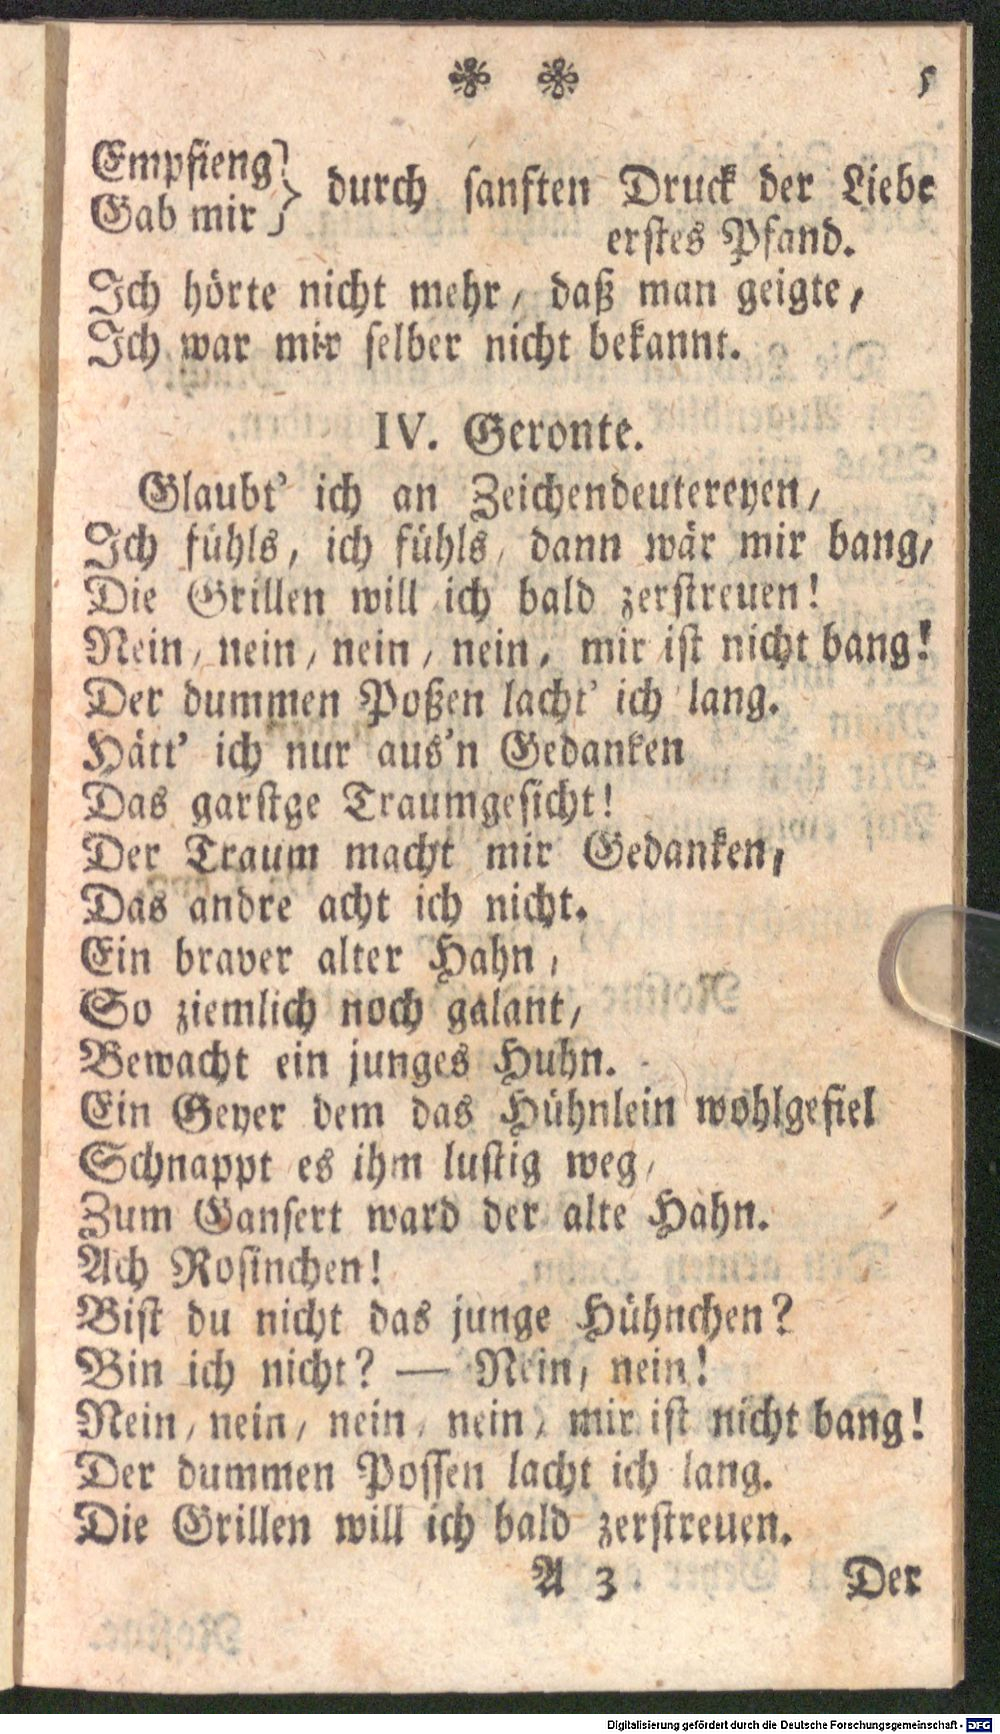 5
Empfieng
Gab mir } durch sanften Druck der Liebe
erstes Pfand.
Ich hörte nicht mehr, daß man geigte,
Ich war mir selber nicht bekannt.
IV. Geronte.
Glaubt' ich an Zeichendeutereyen,
Ich fühls, ich fühls, dann wär mir bang,
Die Grillen will ich bald zerstreuen!
Nein, nein, nein, nein, mir ist nicht bang!
Der dummen Poßen lacht' ich lang.
Hätt' ich nur aus'n Gedanken
Das garstge Traumgesicht!
Der Traum macht mir Gedanken,
Das andre acht ich nicht.
Ein braver alter Hahn,
So ziemlich noch galant,
Bewacht ein junges Huhn.
Ein Geyer dem das Hühnlein wohlgefiel
Schnappt es ihm lustig weg,
Zum Gansert ward der alte Hahn.
Ach Rosinchen!
Bist du nicht das junge Hühnchen?
Bin ich nicht? — Nein, nein!
Nein, nein, nein, nein, mir ist nicht bang!
Der dummen Possen lacht ich lang.
Die Grillen will ich bald zerstreuen.
A 3 Der
Digitalisierung gefördert durch die Deutsche Forschungsgemeinschaft - DFG